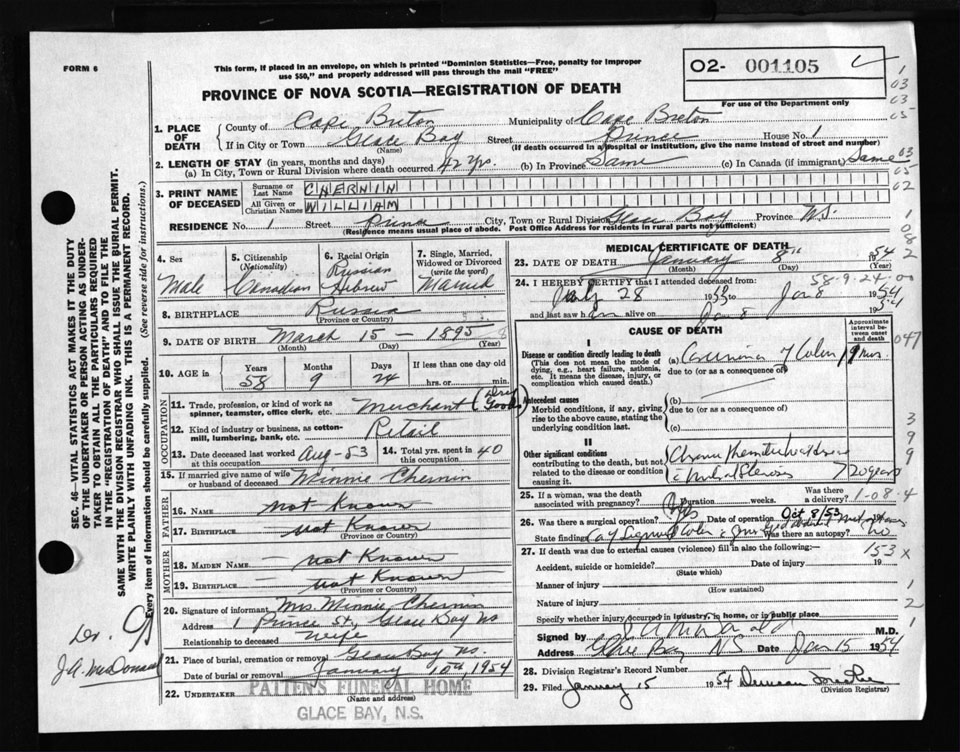 FORM 6
This form, if placed in an envelope, on which is printed "Dominion Statistics—Free, penalty for improper
use $50," and properly addressed will pass through the mail "FREE"
O2- 001105
For use of the Department only
PROVINCE OF NOVA SCOTIA—REGISTRATION OF DEATH
1. PLACE OF DEATH
County of Cape Breton Municipality of Cape Breton
If in City or Town Glace Bay Street Prince House No. 1
(Name) (If death occurred in a hospital or institution, give the name instead of street and number)
2. LENGTH OF STAY (in years, months and days)
(a) In City, Town or Rural Division where death occurred 42 yrs. (b) In Province Same (c) In Canada (if immigrant) Same
3. PRINT NAME OF DECEASED
Surname or Last Name CHERNIN
All Given or Christian Names WILLIAM
RESIDENCE No. 1 Street Prince City, Town or Rural Division Glace Bay Province N.S.
(Residence means usual place of abode. Post Office Address for residents in rural parts not sufficient)
4. Sex Male
5. Citizenship (Nationality) Canadian
6. Racial Origin Russian Hebrew
7. Single, Married, Widowed or Divorced (write the word) Married
8. BIRTHPLACE Russia
(Province or Country)
9. DATE OF BIRTH March 15 - 1895
(Month) (Day) (Year)
10. AGE in Years 58 Months 9 Days 24 hrs. or min.
OCCUPATION
11. Trade, profession, or kind of work as spinner, teamster, office clerk, etc. Merchant (Dry Goods)
12. Kind of industry or business, as cotton-mill, lumbering, bank, etc. Retail
13. Date deceased last worked at this occupation Aug-53
14. Total yrs. spent in this occupation 40
15. If married give name of wife or husband of deceased Minnie Chernin
FATHER
16. Name Not Known
17. Birthplace Not Known
(Province or Country)
MOTHER
18. Maiden Name Not Known
19. Birthplace Not Known
(Province or Country)
20. Signature of informant Mrs. Minnie Chernin
Address 1 Prince St, Glace Bay NS
Relationship to deceased wife
21. Place of burial, cremation or removal Glace Bay NS.
Date of burial or removal January 10th, 1954
22. UNDERTAKER PATTEN'S FUNERAL HOME
(Name and address)
GLACE BAY, N.S.
MEDICAL CERTIFICATE OF DEATH
23. DATE OF DEATH January 8th 1954
(Month) (Day) (Year)
58-9-24-00
24. I HEREBY CERTIFY that I attended deceased from:
July 28 1953 to Jan 8 1954
and last saw him alive on Jan 8 1954
CAUSE OF DEATH
Approximate interval between onset and death
I
Disease or condition directly leading to death
(This does not mean the mode of dying, e.g., heart failure, asthenia, etc. It means the disease, injury, or complication which caused death.)
(a) Carcinoma of Colon
due to (or as a consequence of)
Antecedent causes
Morbid conditions, if any, giving rise to the above cause, stating the underlying condition last.
(b)
due to (or as a consequence of)
(c)
II
Other significant conditions
contributing to the death, but not related to the disease or condition causing it
20 years
25. If a woman, was the death associated with pregnancy? Duration weeks. Was there a delivery?
1-08-4
26. Was there a surgical operation? Yes Date of operation Oct 8/53 19
State findings Was there an autopsy? no
27. If death was due to external causes (violence) fill in also the following:—
153 x
Accident, suicide or homicide? Date of injury 19
(State which)
Manner of injury
(How sustained)
Nature of injury
Specify whether injury occurred in industry, in home, or in public place
Signed by M.D.
Address Glace Bay NS Date Jan 15 1954
28. Division Registrar's Record Number
29. Filed January 15 1954 Duncan
(Division Registrar)
SEC. 46—VITAL STATISTICS ACT MAKES IT THE DUTY
OF THE UNDERTAKER OR PERSON ACTING AS UNDERTAKER
TO OBTAIN ALL THE PARTICULARS REQUIRED
IN THE "REGISTRATION OF DEATH" AND TO FILE THE
SAME WITH THE DIVISION REGISTRAR WHO SHALL ISSUE THE BURIAL PERMIT.
WRITE PLAINLY WITH UNFADING INK. THIS IS A PERMANENT RECORD.
Every item of information should be carefully supplied. (See reverse side for instructions.)
Dr.
J.A. McDonald